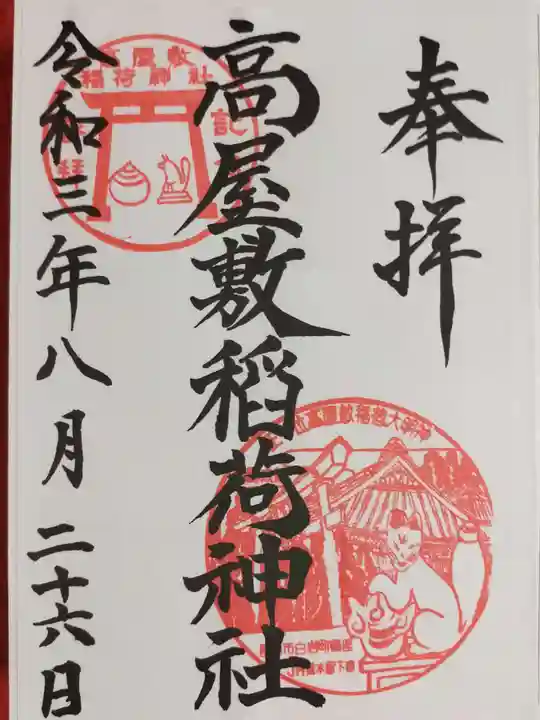 奉拝
高屋敷稲荷神社
令和三年八月二十六日
高屋敷
稲荷神社